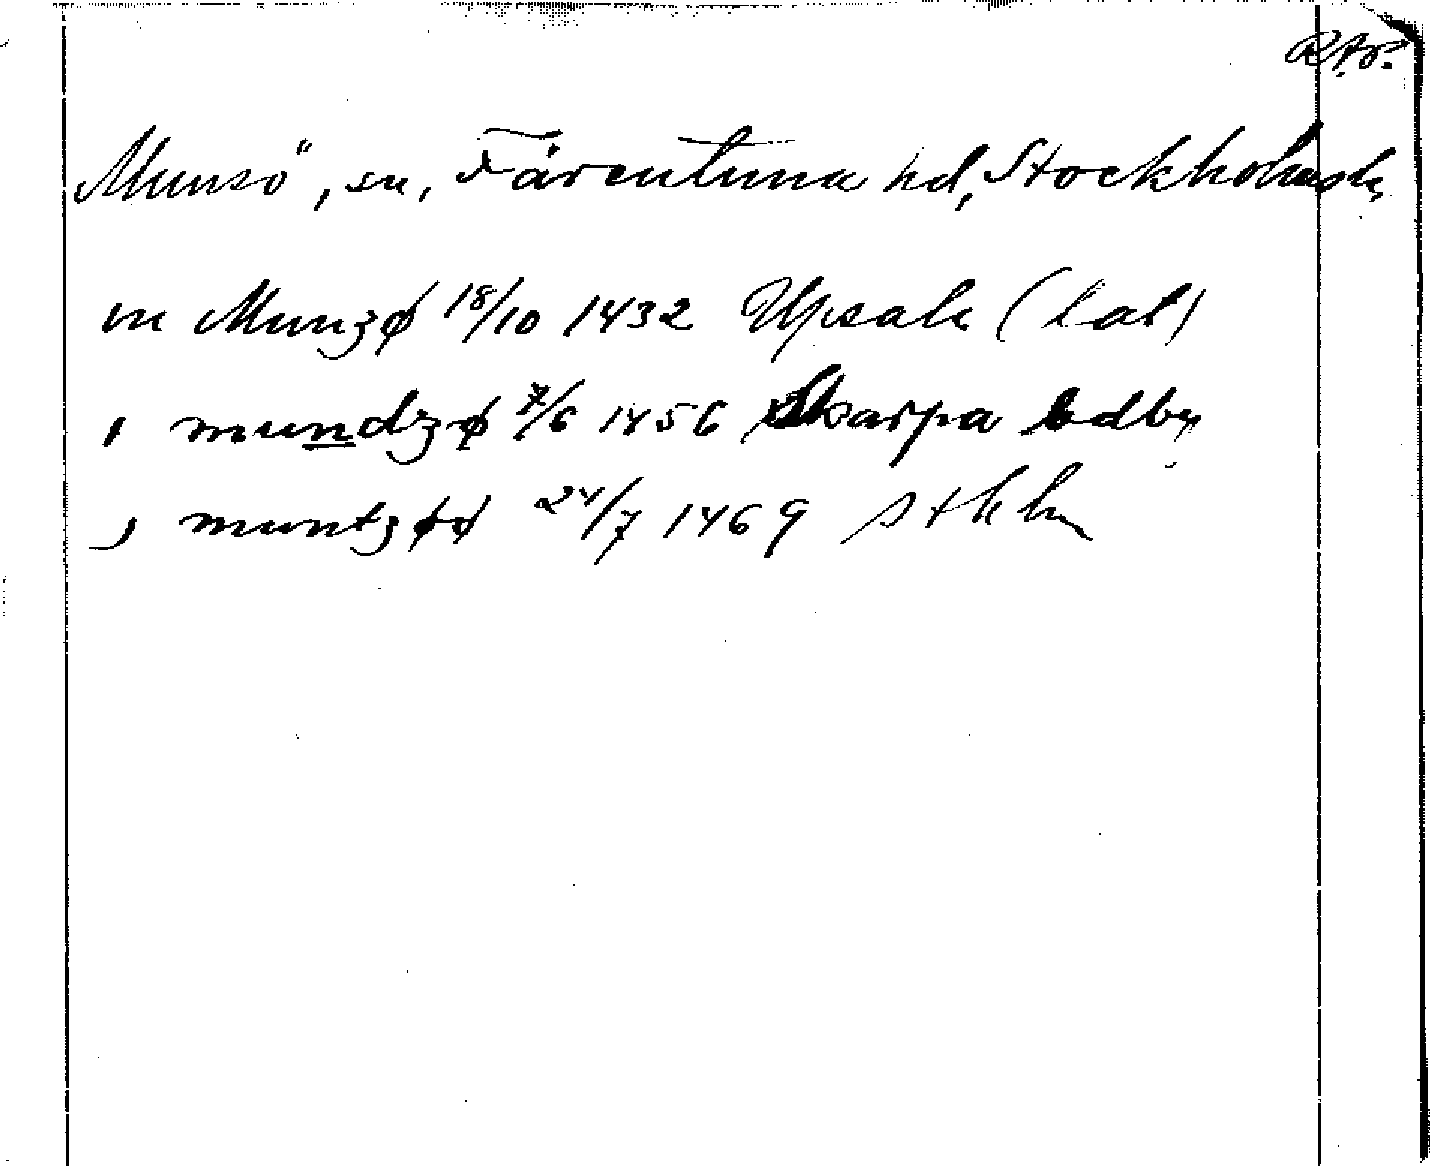 R.A.P.
Munsö, sn, Färentuna hd, Stockholms l.
in Munzø 18/10 1432 Upsala (lat)
i mundzø 7/6 1456 Skarpa Edby
i muntzøø 24/7 1469 Sthlm